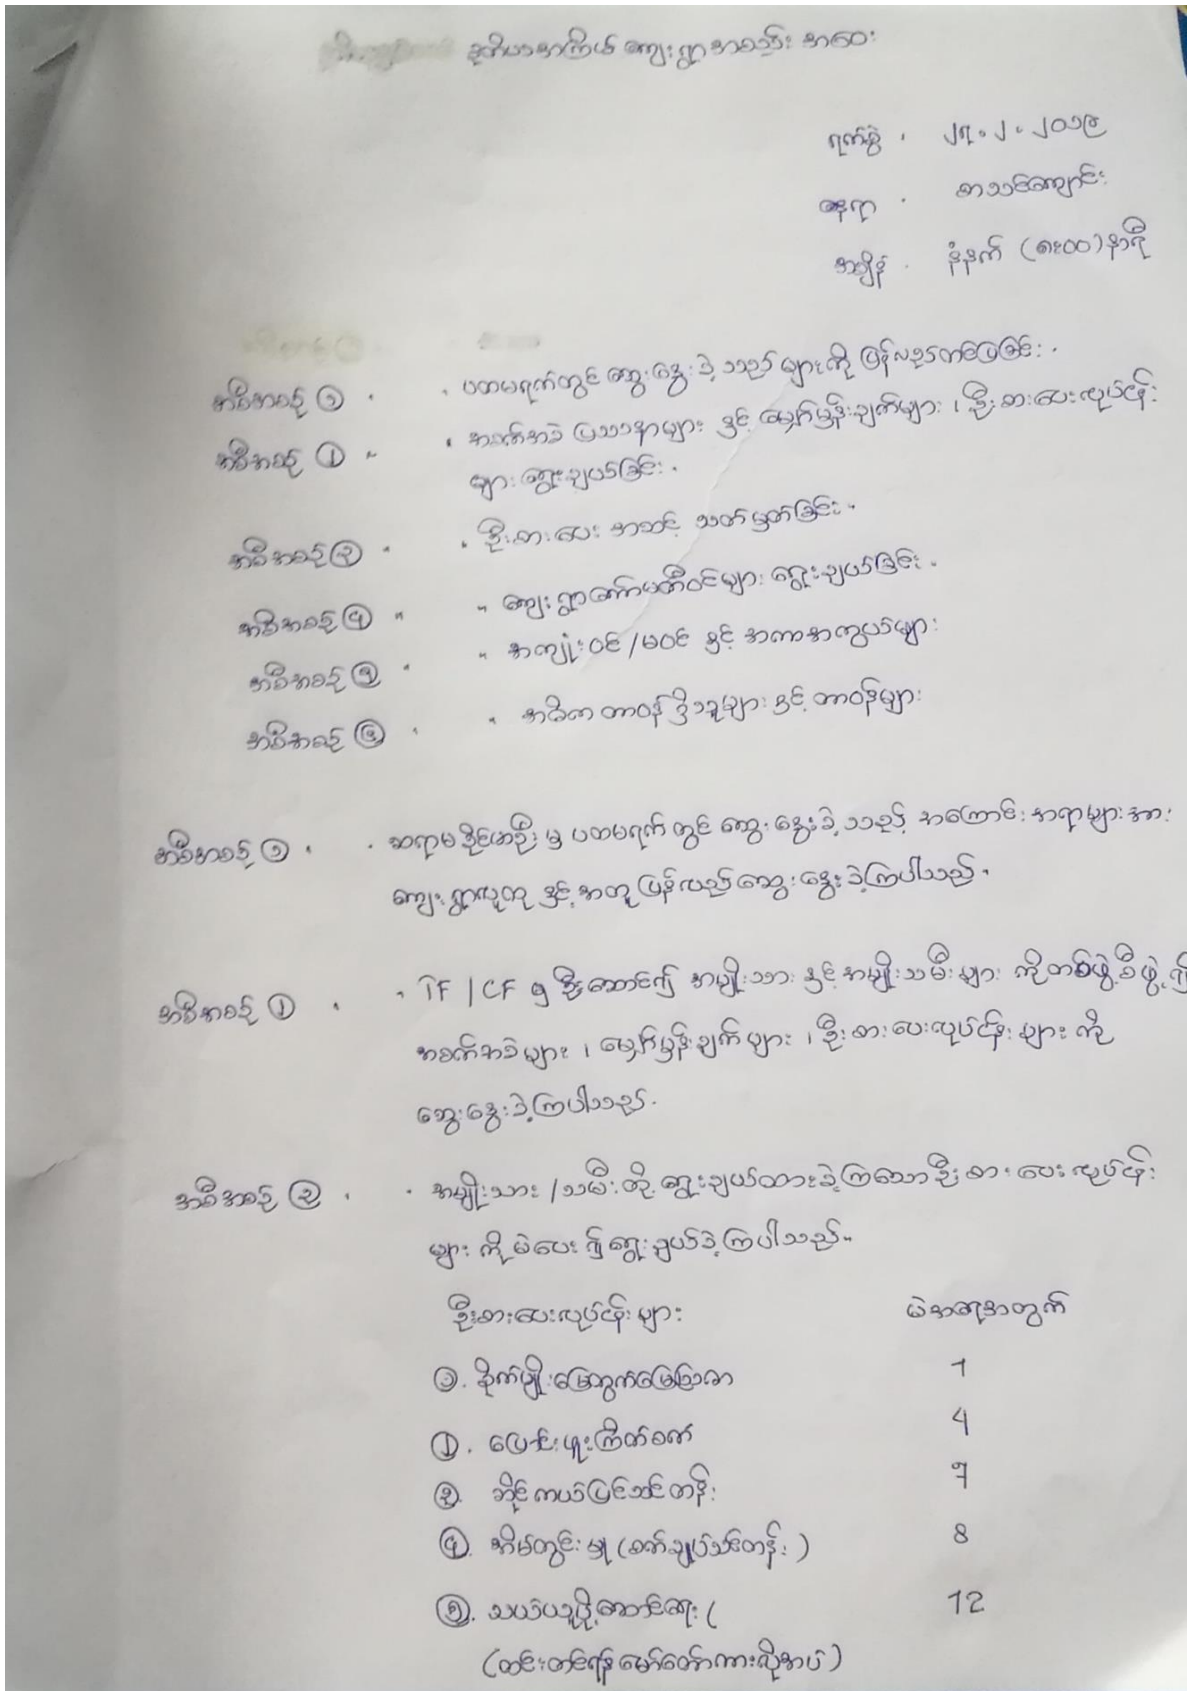 ဒုတိယအကြိမ် ကျေးရွာအစည်း အဝေး
ရက်စွဲ . ၂၇.၂.၂၀၁၉
နေရာ . စာသင်ကျောင်း
အချိန် . နံနက် (၈း၀၀) နာရီ
အစီအစဉ် ၁ . . ပထမရက်တွင် ဆွေးနွေးခဲ့သည် များကို ပြန်လည်တင်ပြခြင်း .
အစီအစဉ် ၂ " . အခက်အခဲ ပြဿနာများ နှင့် မျှော်မှန်းချက်များ ၊ ဦးစားပေးလုပ်ငန်း
များ ရွေးချယ်ခြင်း .
အစီအစဉ် ၃ " . ဦးစားပေး အဆင့် သတ်မှတ်ခြင်း .
အစီအစဉ် ၄ " " ကျေးရွာကော်မတီဝင်များ ရွေးချယ်ခြင်း .
အစီအစဉ် ၅ " " အကျုံးဝင် / မဝင် နှင့် အကာအကွယ်များ
အစီအစဉ် ၆ . . အဓိက တာဝန်ရှိသူများ နှင့် တာဝန်များ
အစီအစဉ် ၁ . . ဆရာမ ခိုင်ဇာဦး မှ ပထမရက်တွင် ဆွေးနွေးခဲ့သည့် အကြောင်းအရာများအား
ကျေးရွာလူထု နှင့် အတူ ပြန်လည်ဆွေးနွေးခဲ့ကြပါသည် .
အစီအစဉ် ၂ . . TF / CF မှ ဦးဆောင်၍ အမျိုးသား နှင့် အမျိုးသမီးများ ကိုတစ်ဖွဲ့စီဖွဲ့၍
အခက်အခဲများ ၊ မျှော်မှန်းချက်များ ၊ ဦးစားပေးလုပ်ငန်းများ ကို
ဆွေးနွေးခဲ့ကြပါသည် .
အစီအစဉ် ၃ . . အမျိုးသား / သမီးတို့ ရွေးချယ်ထားခဲ့ကြသော ဦးစားပေးလုပ်ငန်း
များ ကို မဲပေး၍ ရွေးချယ်ခဲ့ကြပါသည် "
ဦးစားပေးလုပ်ငန်းများ မဲအရေအတွက်
၁. စိုက်ပျိုးမြေအတွက်မြေသြဇာ 1
၂. ပြောင်းဖူးကြိတ်စက် 4
၃. ဆိုင်ကယ်ပြင်သင်တန်း 7
၄. အိမ်တွင်းမှု (စက်ချုပ်သင်တန်း ) 8
၅. သယ်ယူပို့ဆောင်ရေး ( 12
(ထင်းတင်ရန် မော်တော်ကားလိုအပ်)